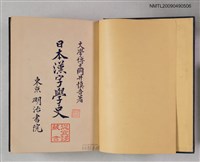 NMTL20090490506
文學博士岡井愼吾著
日本漢字學史
東京 明治書院